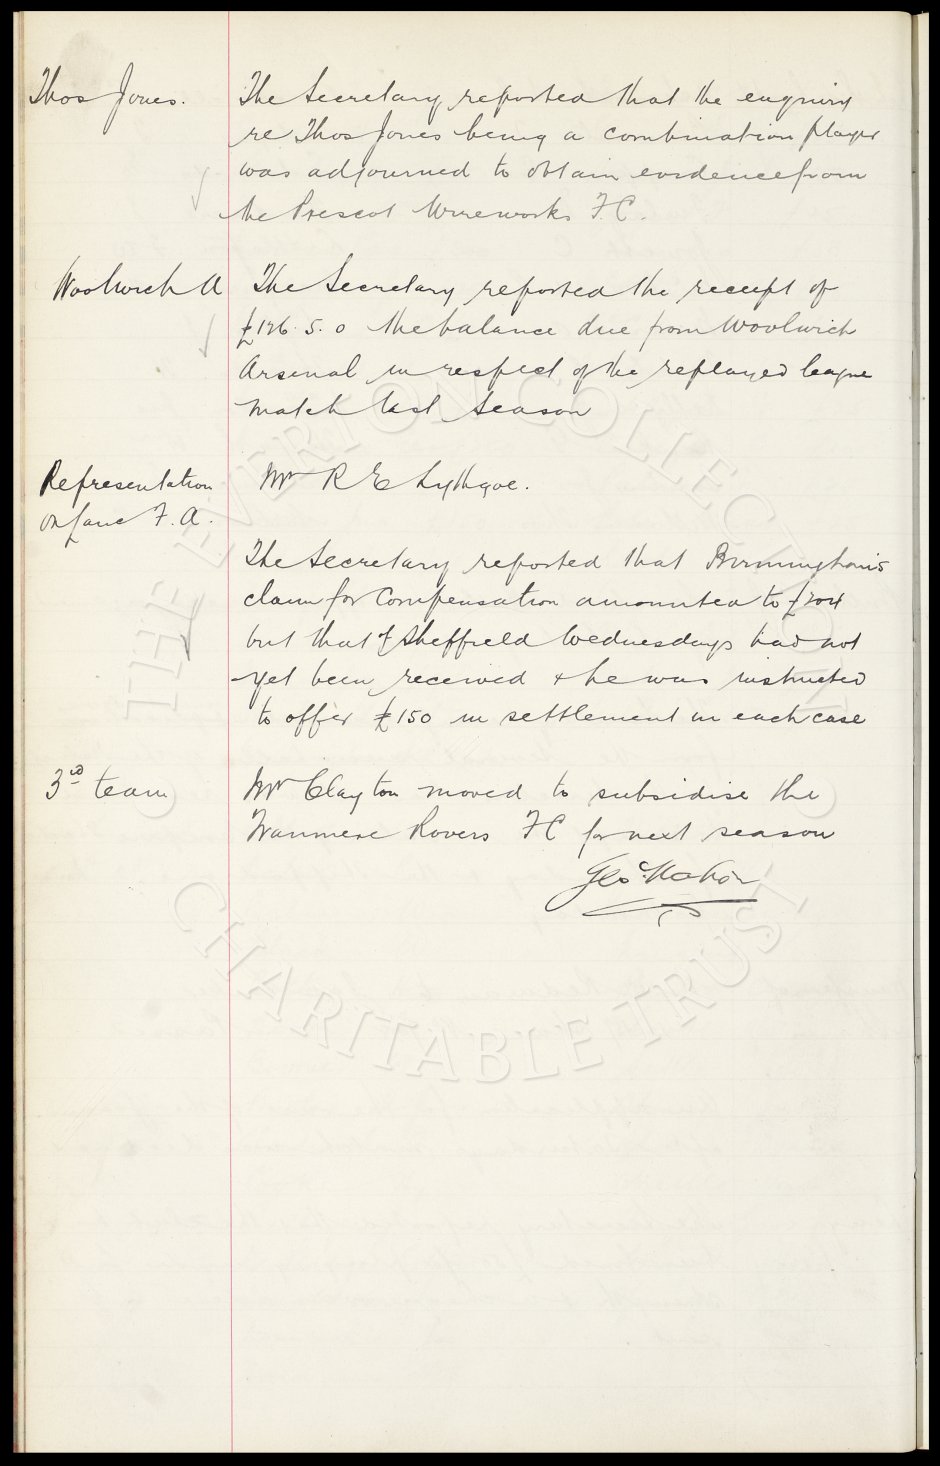 Thos Jones.
The Secretary reported that the enquiry
re Thos Jones being a combination player
was adjourned to obtain evidence from
the Prescot Wireworks F.C.
Woolwich A
The Secretary reported the receipt of
£126. 5. 0 the balance due from Woolwich
Arsenal in respect of the replayed league
match last season
Representation
on Lanc F. A.
Mr R E Lythgoe.
The Secretary reported that Birmingham's
claim for compensation amounted to £204
but that of Sheffield Wednesdays had not
yet been received & he was instructed
to offer £150 in settlement in each case
3rd team
Mr Clayton moved to subsidise the
Tranmere Rovers FC for next season
Geo Mahon
THE EVERTON COLLECTION
CHARITABLE TRUST